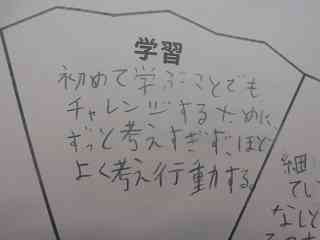 学習
初めて学ぶことでも
チャレンジするために、
ずっと考えすぎず、ほど
よく考え行動する。
細
てい
なしと